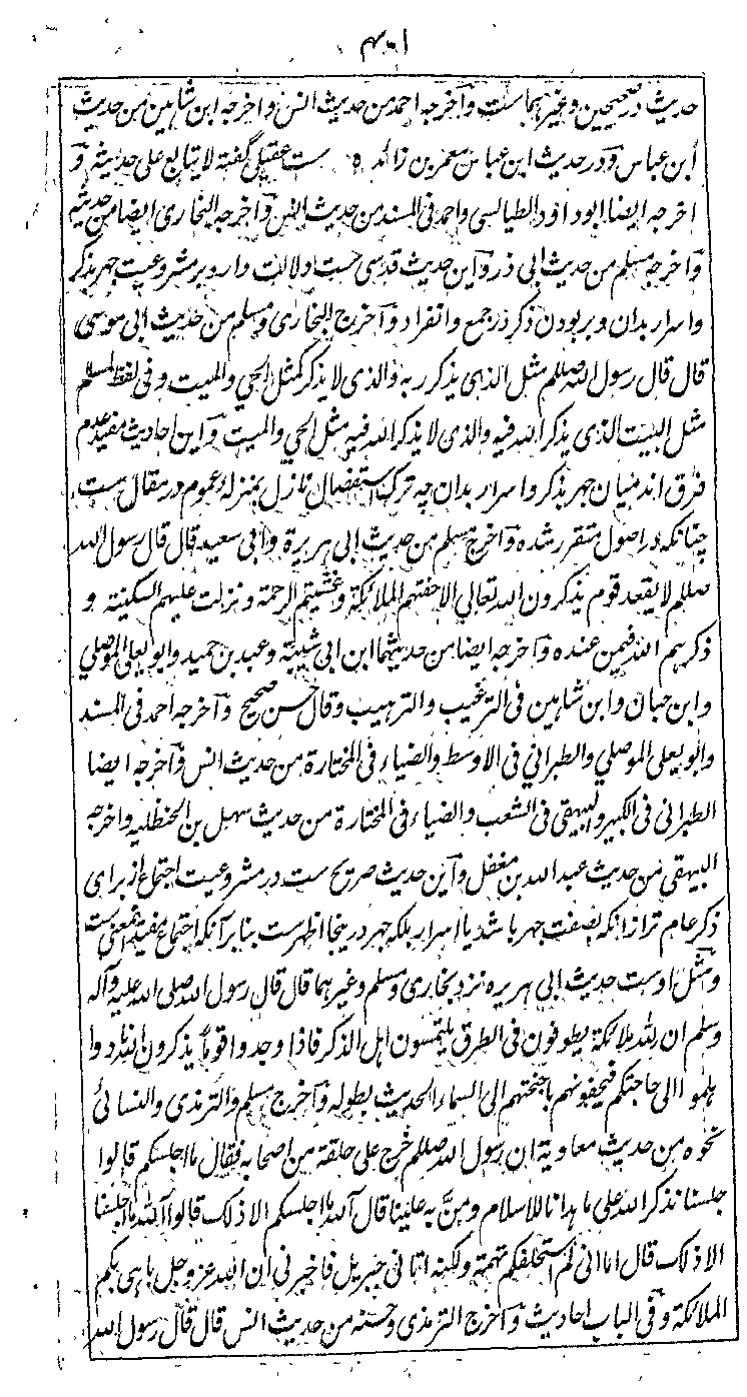 ۴۵۱
حدیث در صحیحین و غیرهما ست وآخرجه احمد من حدیث انس واخرجه ابن شاهین من حدیث
ابن عباس ودر حدیث ابن عباس معمر بن زائده ست عقیلی گفته لا یتابع علی حدیثه و
اخرجه ایضا ابوداؤد الطیالسی واحمد فی المسند من حدیث انس وآخرجه البخاری ایضا من حدیثه
وآخرجه مسلم من حدیث ابی ذر واین حدیث قدسی ست دلالت دارد بر مشروعیت جهر بذکر
واسرار بدان و بر بودن ذکر در جمع وانفراد وآخرج البخاری ومسلم من حدیث ابی موسی
قال قال رسول الله صللم مثل الذی یذکر ربه والذی لا یذکر کمثل الحی والمیت وفی لفظ لمسلم
مثل البیت الذی یذکر الله فیه والذی لا یذکر الله فیه مثل الحی والمیت واین احادیث مفید عدم
فرق اند میان جهر بذکر واسرار بدان چه ترک استفصال نازل بمنزلهٔ عموم در مقال ست
چنانکه در اصول متقرر شده وآخرج مسلم من حدیث ابی هریرة وابی سعید قال قال رسول الله
صللم لا یقعد قوم یذکرون الله تعالی الا حفتهم الملائکة وغشیتهم الرحمة ونزلت علیهم السکینة و
ذکرهم الله فیمن عنده وآخرجه ایضا من حدیثهما ابن ابی شیبة وعبد بن حمید وابو یعلی الموصلی
وابن حبان وابن شاهین فی الترغیب والترهیب وقال حسن صحیح وآخرجه احمد فی المسند
وابو یعلی الموصلی والطبرانی فی الاوسط والضیاء فی المختارة من حدیث انس وآخرجه ایضا
الطبرانی فی الکبیر والبیهقی فی الشعب والضیاء فی المختارة من حدیث سهل بن الحنظلیه واخرجه
البیهقی من حدیث عبد الله بن مغفل وآین حدیث صریح ست در مشروعیت اجتماع از برای
ذکر عام تر ازانکه بصفت جهر باشد یا اسرار بلکه جهر درینجا اظهر ست بنابر آنکه اجتماع مفید همین معنی ست
ومثل اوست حدیث ابی هریره نزد بخاری ومسلم وغیرهما قال قال رسول الله صلی الله علیه وآله
وسلم ان لله ملائکة یطوفون فی الطرق یلتمسون اهل الذکر فاذا وجدوا قوما یذکرون الله تنادوا
هلموا الی حاجتکم فیحفونهم باجنحتهم الی السماء الحدیث بطوله وآخرج مسلم والترمذی والنسائی
نحوه من حدیث معاویة ان رسول الله صللم خرج علی حلقة من اصحابه فقال ما اجلسکم قالوا
جلسنا نذکر الله علی ما هدانا للاسلام ومنّ به علینا قال آلله ما اجلسکم الا ذلک قالوا آلله ما اجلسنا
الا ذلک قال اما انی لم استحلفکم تهمة ولکنه اتانی جبریل فاخبرنی ان الله عز وجل یباهی بکم
الملائکة وفی الباب احادیث وآخرج الترمذی وحسنه من حدیث انس قال قال رسول الله